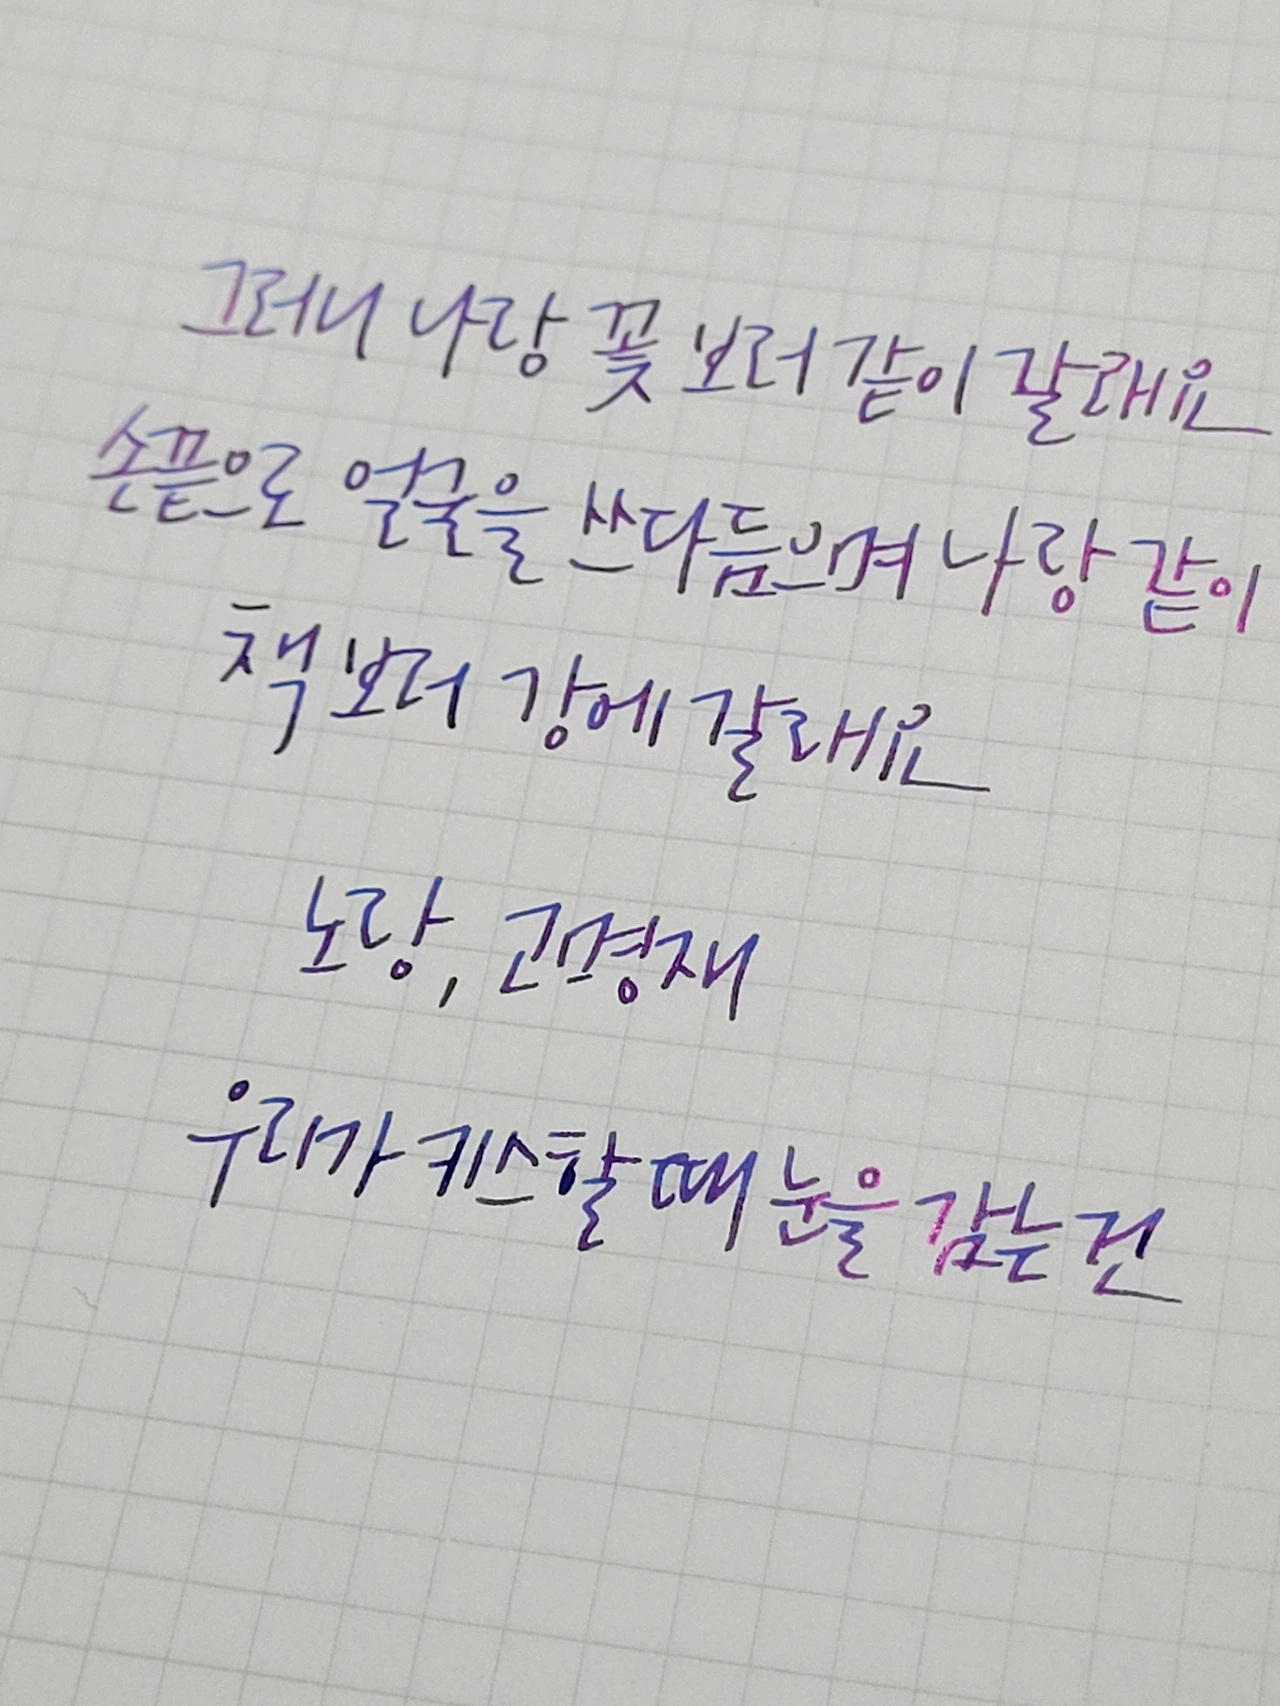 그러니 나랑 꽃 보러 같이 갈래요
손끝으로 얼굴을 쓰다듬으며 나랑 같이
책 보러 강에 갈래요
노랑, 고명재
우리가 키스할 때 눈을 감는 건